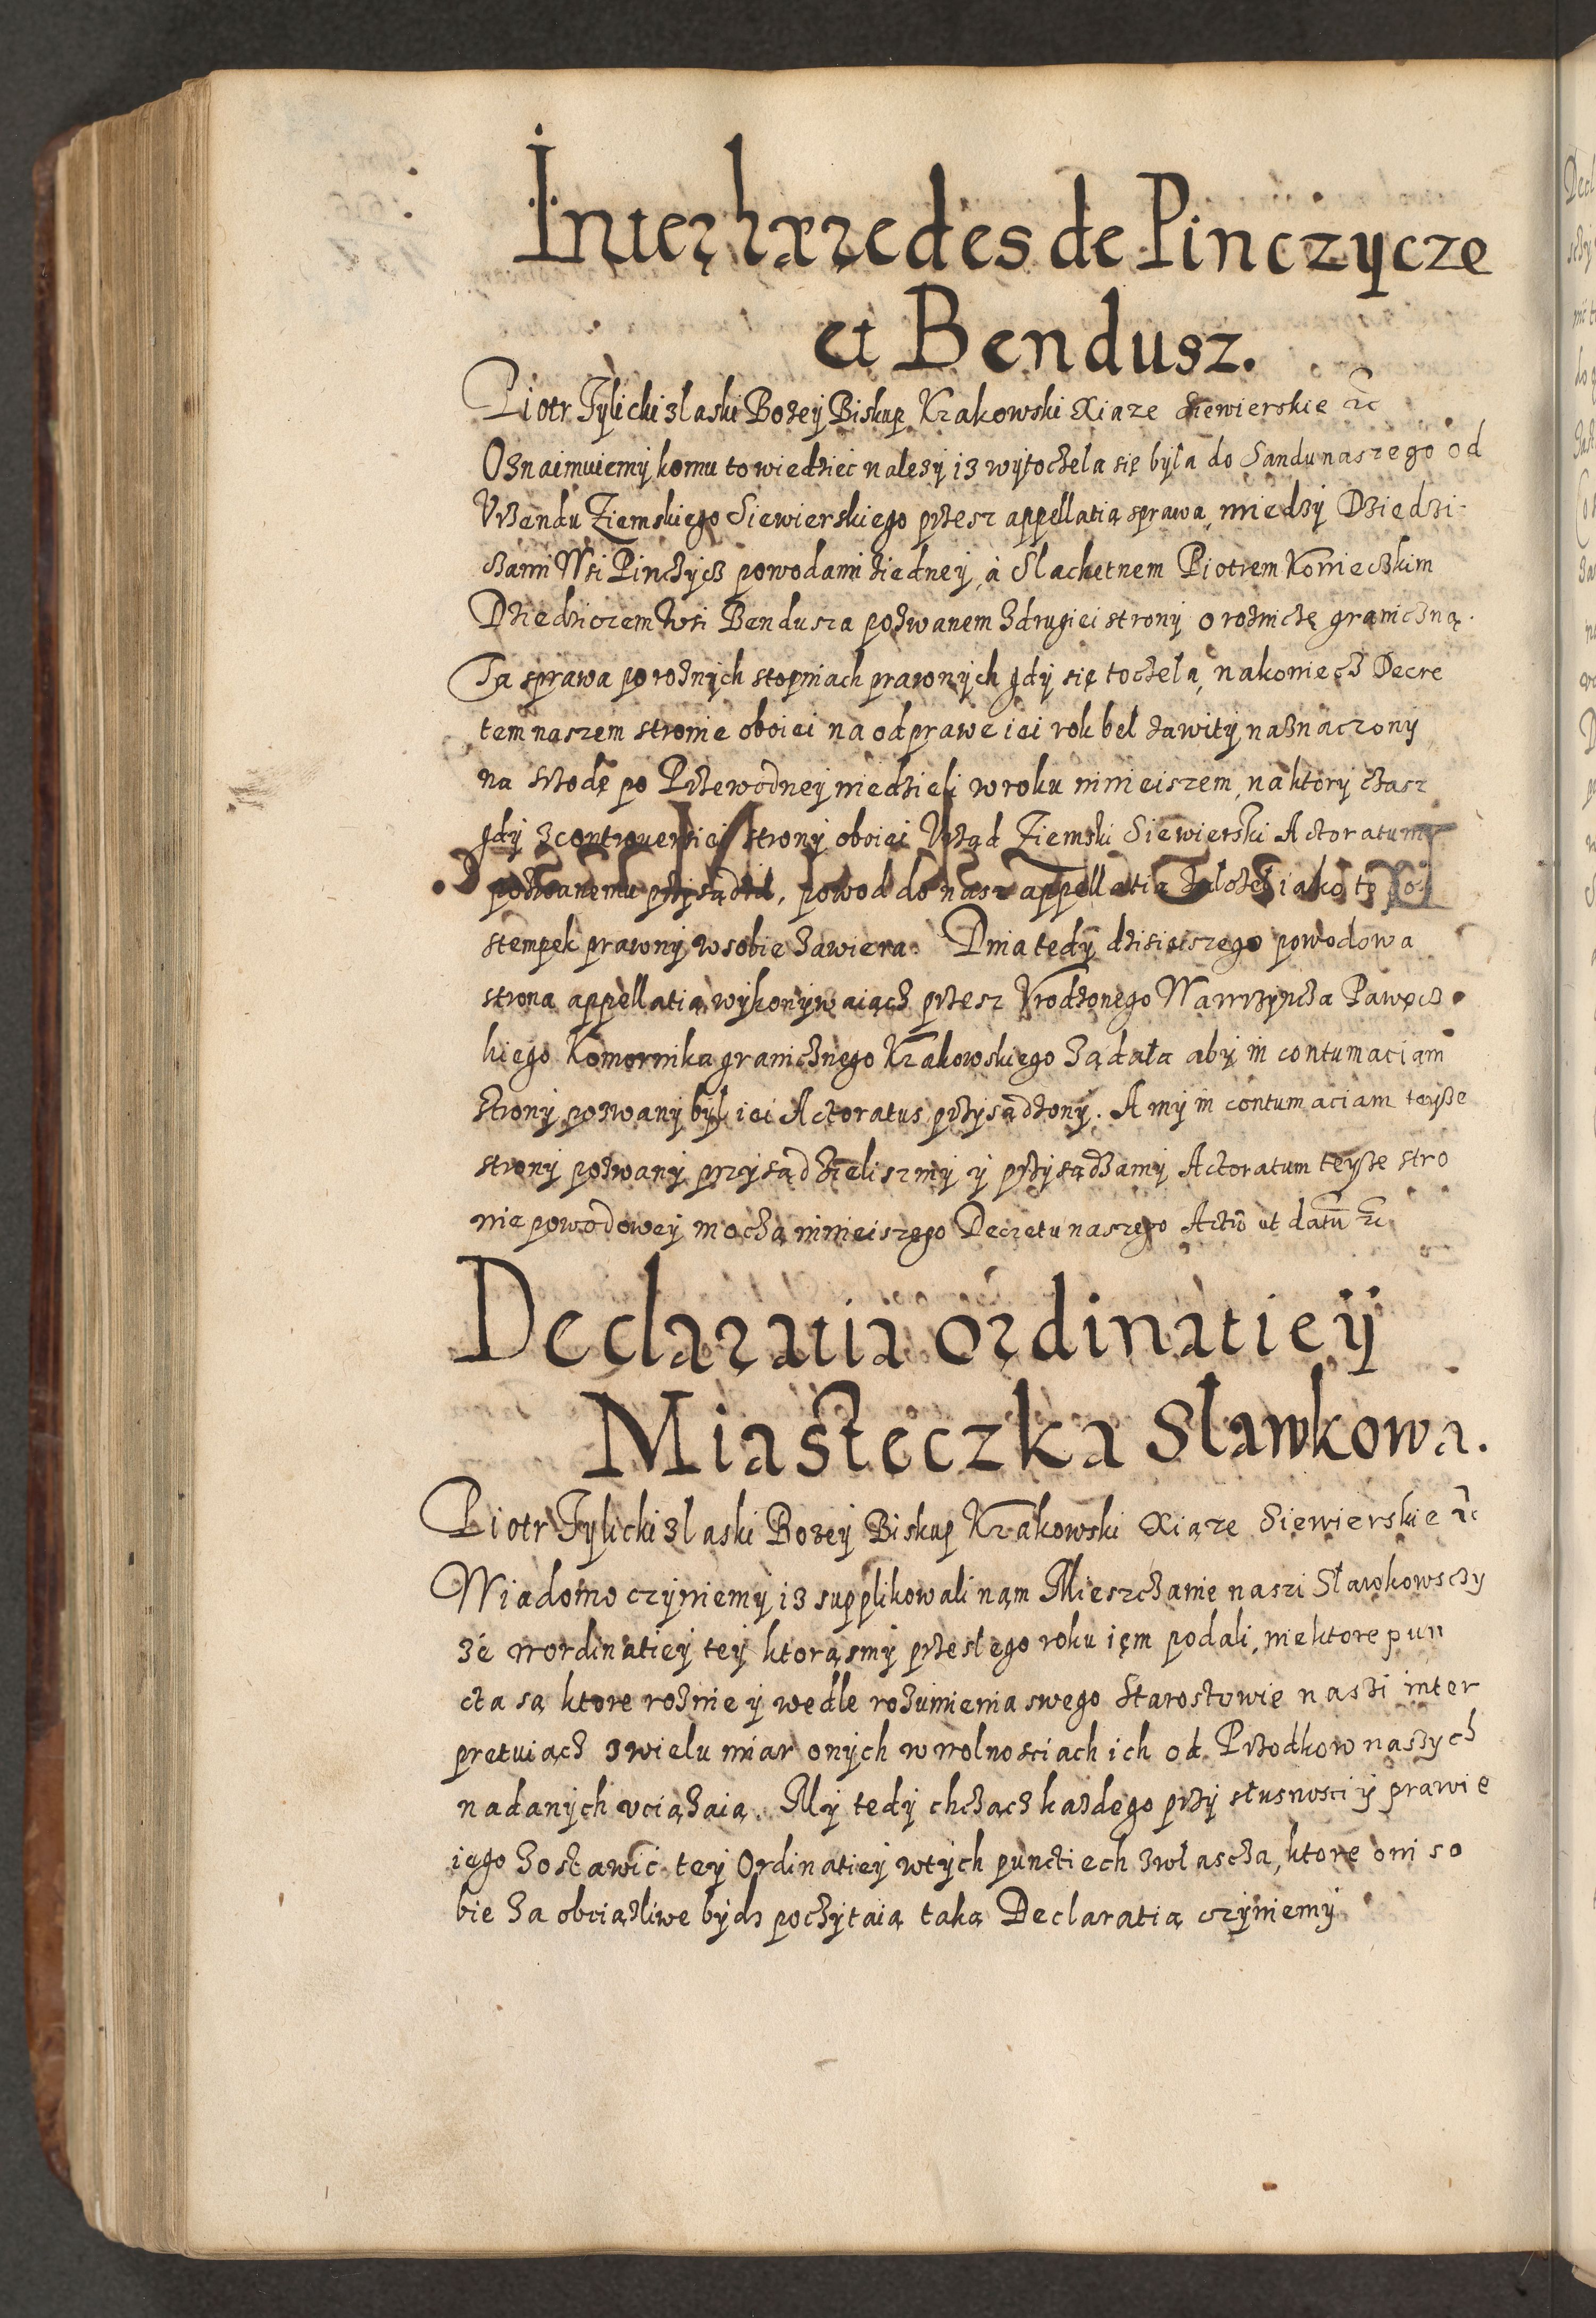 Inter hæredes de Pinczycze
et Bendusz.
Piotr Tylicki z laski Bozey Biskup Krakowski Xiaze Siewierskie etc
Oznaimuiemy komu to wiedziec nalezy iz wytoczela się była do Sandu naszego od
Vrzendu Ziemskiego Siewierskiego przesz appellatią sprawa, miedzy Dziedzi-
czami Wsi Pinczycz powodami ziedney, á Slachetnem Piotrem Konieczkim
Dziedziczem wsi Bendusza pozwanem z drugiei strony o roznicżę graniczną.
Ta sprawa po roznych stopniach prawnych gdy się toczela, nakoniecz Decre
tem naszem stronie oboiei na odprawe iei rok bel zawity naznaczony
na srzodę po Przewodney niedzieli w roku ninieiszem, na ktory czasz
gdy z controuersiei strony oboiei Vrząd Ziemski Siewierski Actoratum
pozwanemu przysądził, powod do nasz appellatią założeł iako to po-
stempek prawny w sobie zawiera. Dnia tedy dzisieiszego powodowa
strona appellatią wykonywaiącz przesz Vrodzonego Wawrzyncza Pawęcz
kiego Komornika granicznego Krakowskiego ządała aby in contumaciam
strony pozwany był iei Actoratus przysądzony. A my in contumaciam teyze
strony pozwany przysądzieliszmy y przysądzamy Actoratum teyze stro
nie powodowey moczą ninieiszego Decretu naszego Actū ut datū etc
Declaratia ordinatiey
Miasteczka Sławkowa.
Piotr Tylicki z laski Bozey Biskup Krakowski Xiąze Siewierskie etc
Wiadomo czyniemy iz supplikowali nąm Mieszczanie naszi Sławkowsczy
zé w ordinatiey tey ktorąsmy przesłego roku ięm podali, niektore pun
cta są ktore roznie y wedle rozumienia swego Starostowie naszi inter
pretuiącz z wielu miar onych w wolnosciach ich od Przodkow naszych
nadanych vciązaią. My tedy chcżącz kazdego przy słusnosci y prawie
iego zostawić tey Ordinatiey w tych punctiech zwłascza, ktore oni so
bie za obciązliwe bydz poczytaią taką Declaratią czyniemy